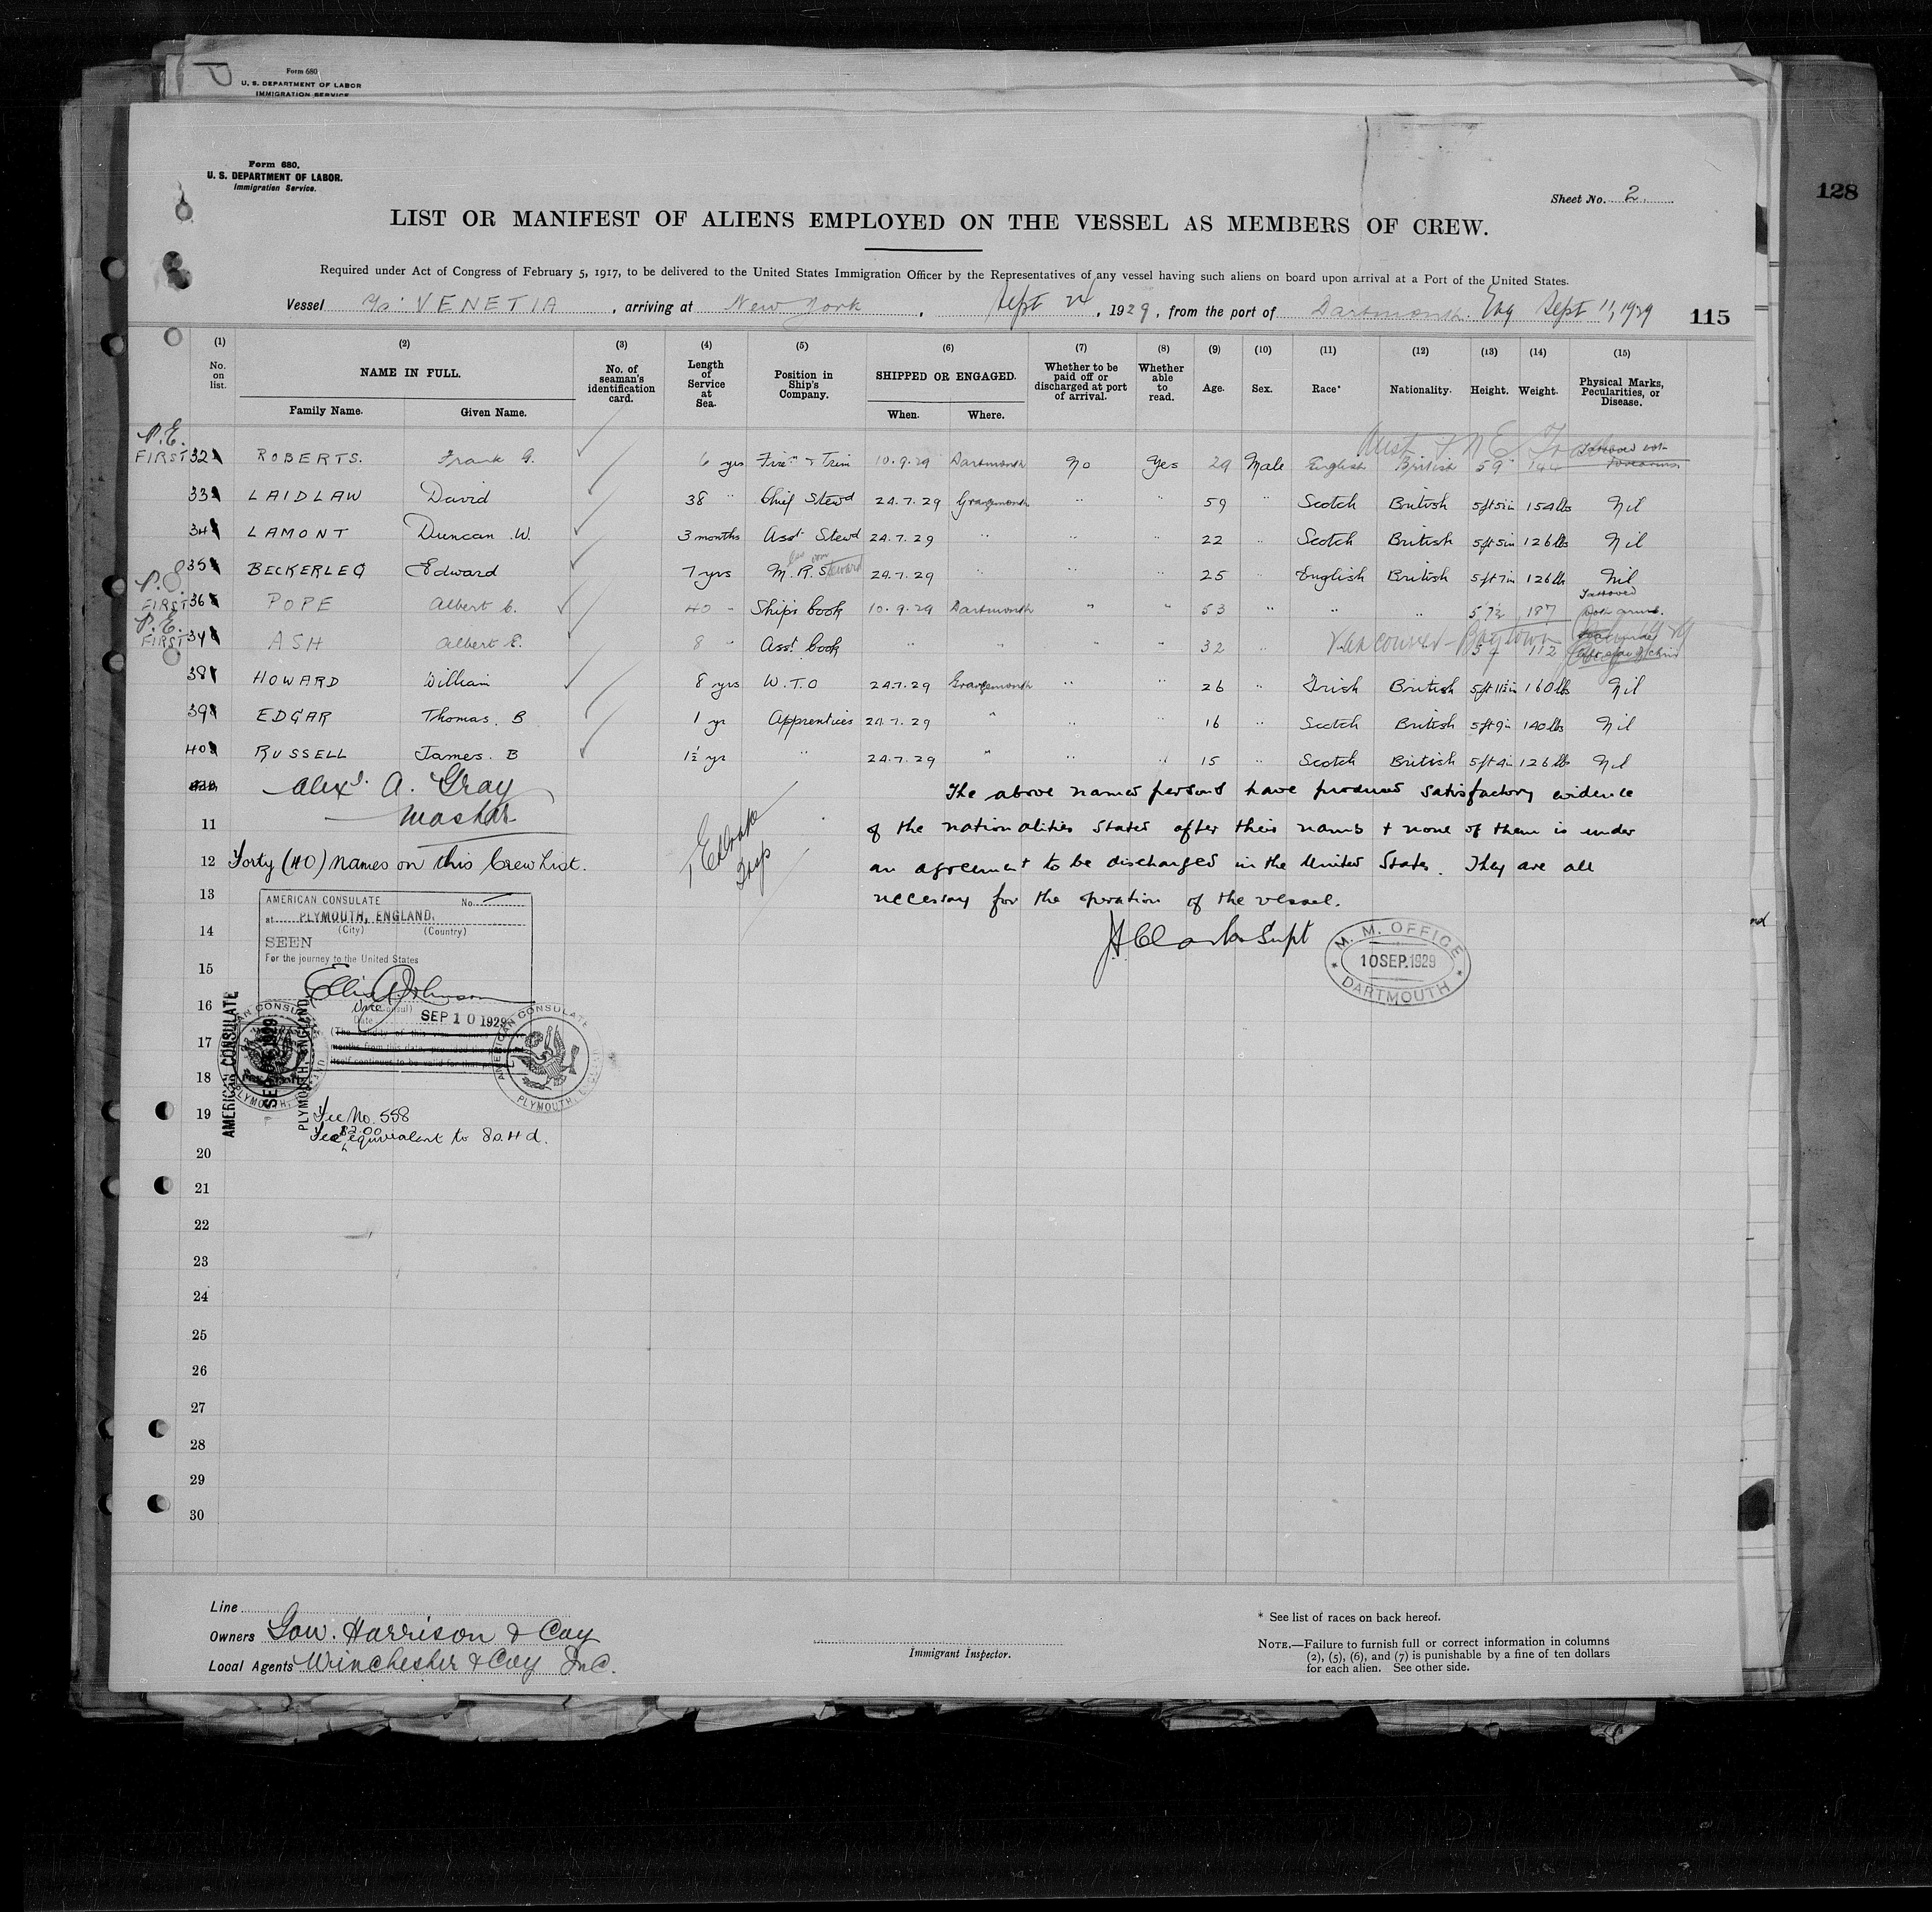 Form 680
U. S. DEPARTMENT OF LABOR
IMMIGRATION SERVICE
128
Form 680.
U. S. DEPARTMENT OF LABOR.
Immigration Service.
Sheet No. 2.
LIST OR MANIFEST OF ALIENS EMPLOYED ON THE VESSEL AS MEMBERS OF CREW.
Required under Act of Congress of February 5, 1917, to be delivered to the United States Immigration Officer by the Representatives of any vessel having such aliens on board upon arrival at a Port of the United States.
Vessel VENETIA, arriving at New York, Sept 24, 1929, from the port of Dartmouth Eng Sept 11, 1929 115
(1) (2) (3) (4) (5) (6) (7) (8) (9) (10) (11) (12) (13) (14) (15)
No. on list. NAME IN FULL. No. of seaman's identification card. Length of Service at Sea. Position in Ship's Company. SHIPPED OR ENGAGED. Whether to be paid off or discharged at port of arrival. Whether able to read. Age. Sex. Race* Nationality. Height. Weight. Physical Marks, Pecularities, or Disease.
Family Name. Given Name. When. Where.
P.E.
FIRST 32 ROBERTS. Frank G. 6 yrs Fire & Trim 10.9.29 Dartmouth No Yes 29 Male English British 5 9 144 Tattooed both forearms
33 LAIDLAW David 38 " Chief Stewd 24.7.29 Grangemouth " " 59 " Scotch British 5ft 5in 154lbs Nil
34 LAMONT Duncan W. 3 months Asst Stewd 24.7.29 " " " 22 " Scotch British 5ft 5in 126lbs Nil
35 BECKERLEG Edward 7 yrs M. R. Steward 24.7.29 " " " 25 " English British 5ft 7in 126lbs Nil
FIRST 36 POPE Albert C. 40 " Ships Cook 10.9.29 Dartmouth " " 53 " " " 5 7½ 187 Tattooed both arms.
P.E.
FIRST 37 ASH Albert E. 8 " Asst Cook " " " " 32 " Vancouver - Baytown 5 7 112
38 HOWARD William 8 yrs W.T.O 24.7.29 Grangemouth " " 26 " Irish British 5ft 11½in 160lbs Nil
39 EDGAR Thomas. B 1 yr Apprentices 24.7.29 " " " 16 " Scotch British 5ft 9in 140lbs Nil
40 RUSSELL James. B 1½ yr " 24.7.29 " " " 15 " Scotch British 5ft 4in 126lbs Nil
Alexr. A. Gray
Master
The above named persons have produced satisfactory evidence
11 of the nationalities stated after their names & none of them is under
12 Forty (40) names on this Crew List. an agreement to be discharged in the United States. They are all
13 necessary for the operation of the vessel.
AMERICAN CONSULATE No.
at PLYMOUTH, ENGLAND.
(City) (Country)
14 SEEN
For the journey to the United States
J.H Clarke Supt
M. M. OFFICE
10 SEP. 1929
DARTMOUTH
15
Ellis A Johnson
16
Vice Consul
Date SEP 10 1929
(The validity of this visa
17 months from this date, provided the
itself continues to be valid for that period.)
AMERICAN CONSULATE
PLYMOUTH, ENGLAND
AMERICAN CONSULATE
PLYMOUTH,
18
19 Fee No. 558
Fee $2.00 equivalent to 8s.4d.
20
21
22
23
24
25
26
27
28
29
30
Line
Owners Gow. Harrison & Coy
Local Agents Winchester & Coy Inc.
Immigrant Inspector.
* See list of races on back hereof.
NOTE.—Failure to furnish full or correct information in columns
(2), (5), (6), and (7) is punishable by a fine of ten dollars
for each alien. See other side.